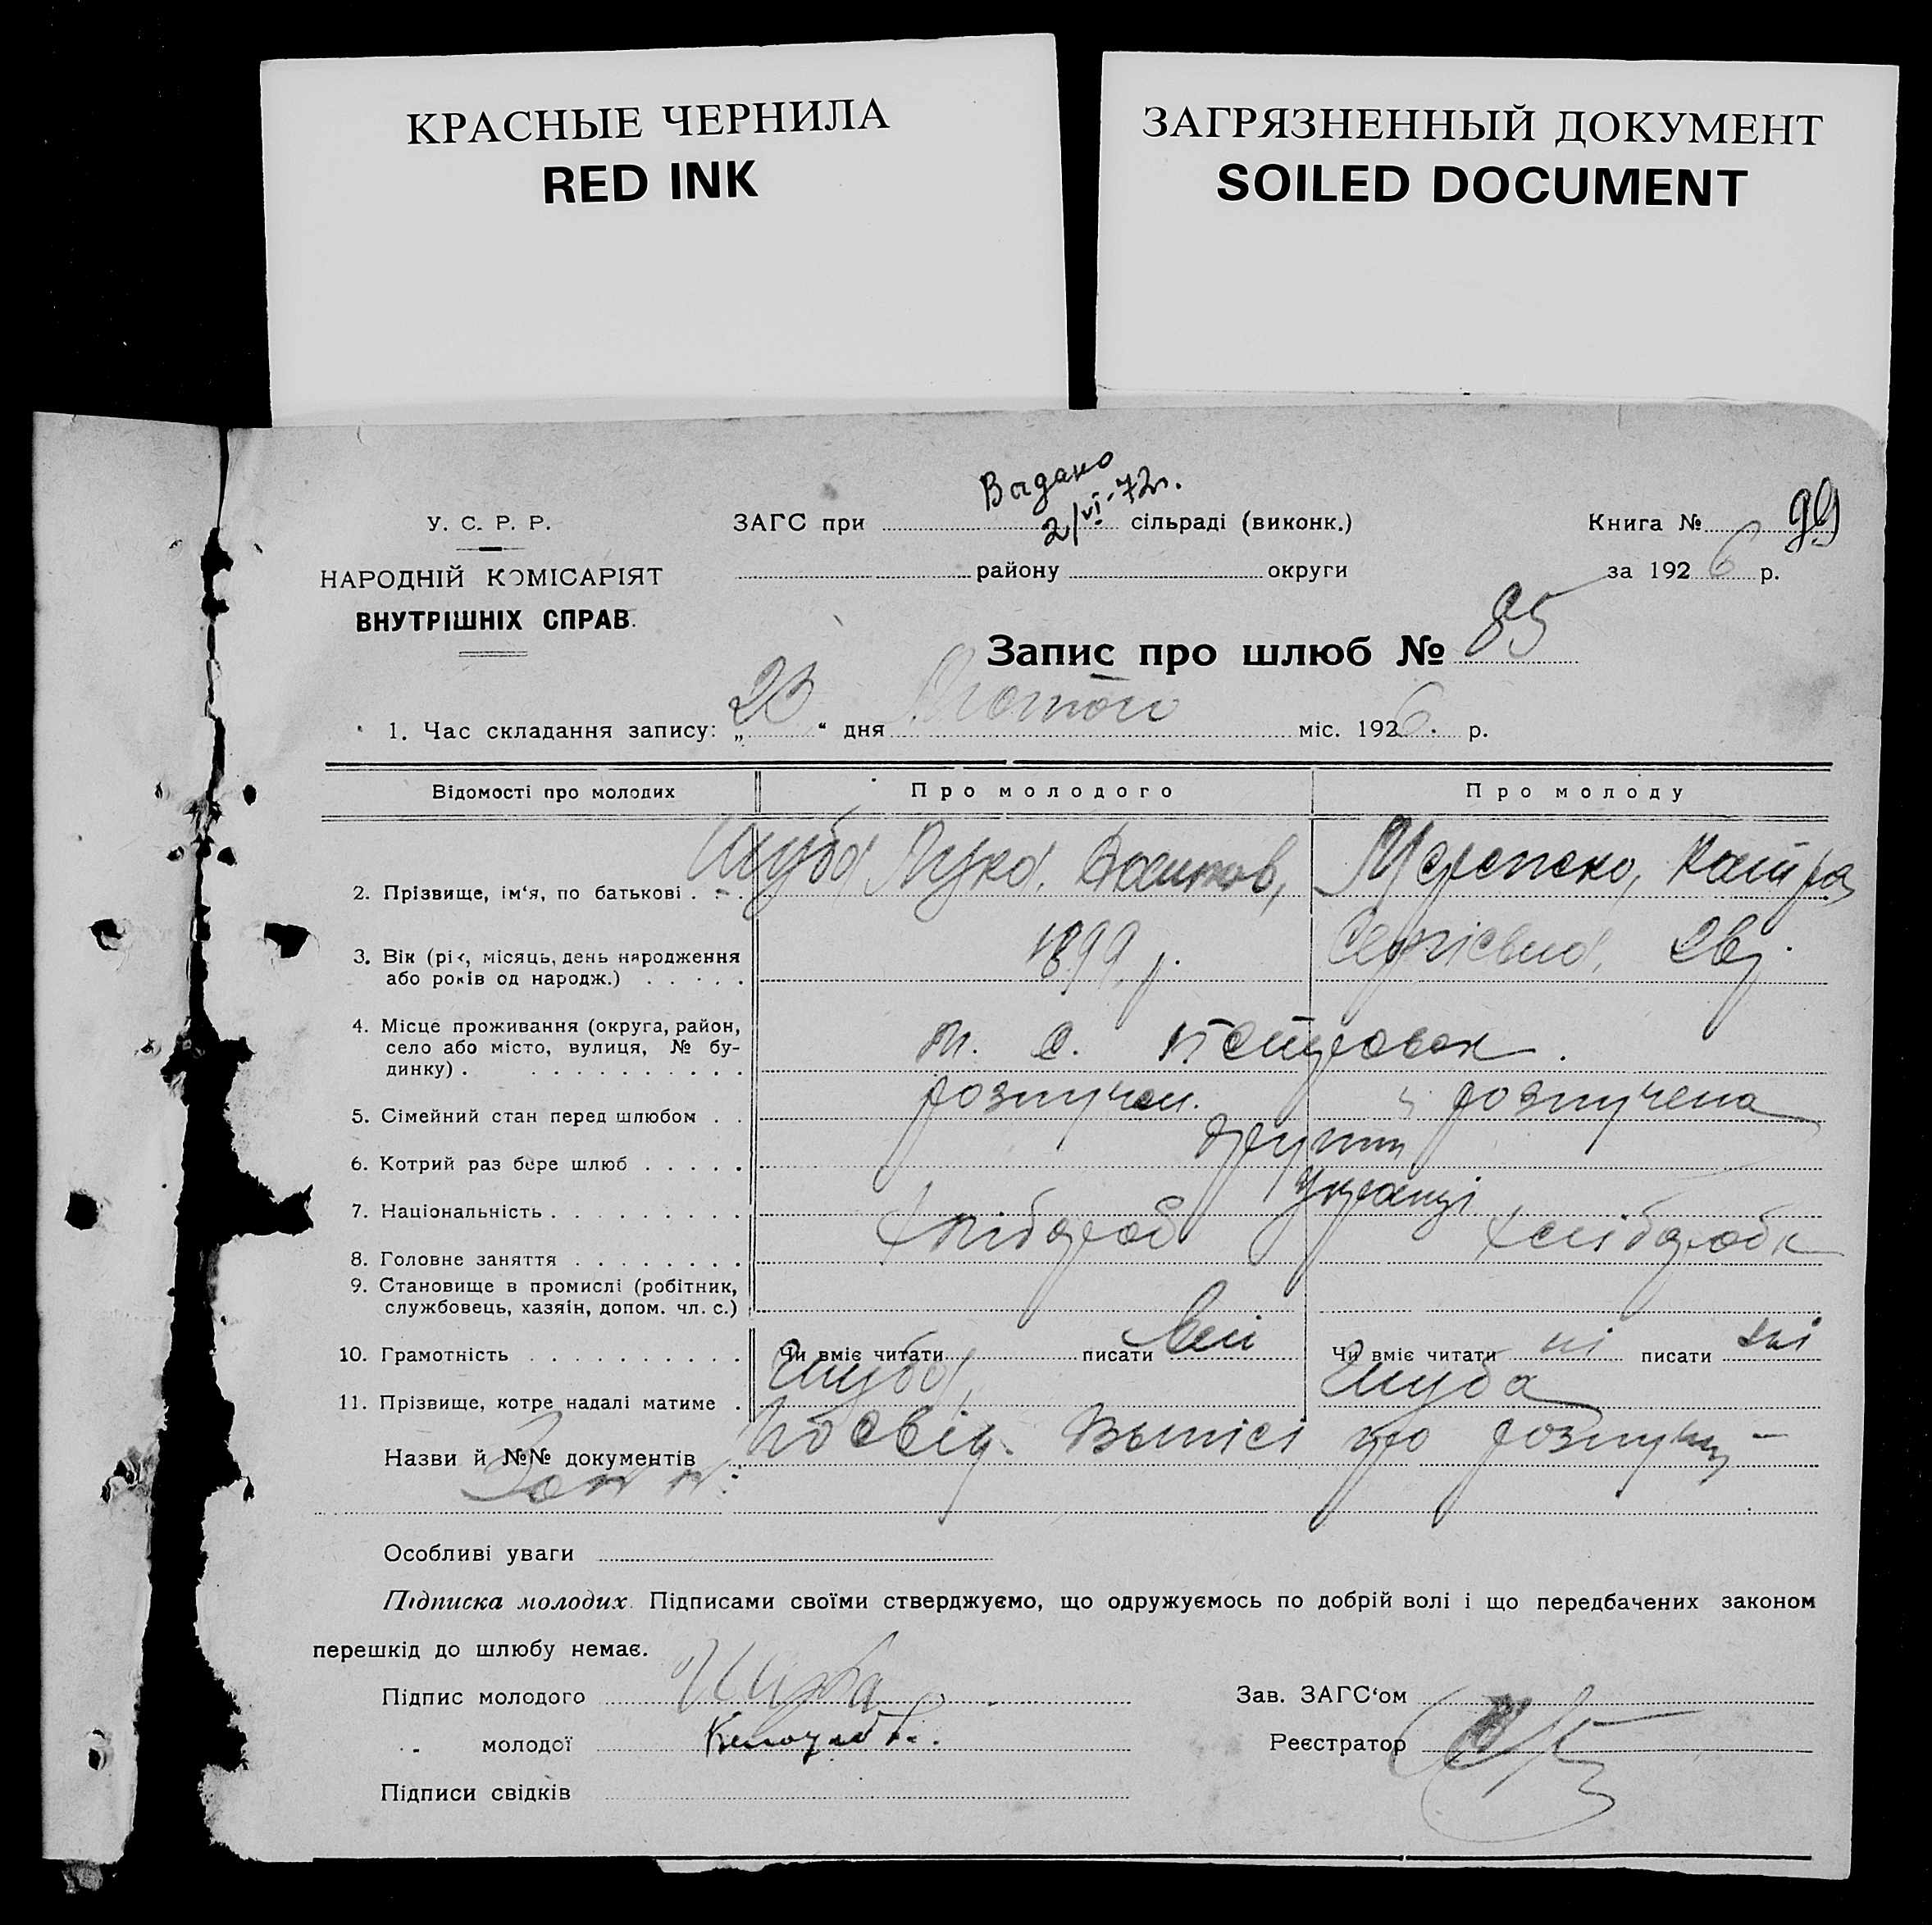 КРАСНЫЕ ЧЕРНИЛА
RED INK
ЗАГРЯЗНЕННЫЙ ДОКУМЕНТ
SOILED DOCUMENT
У. С. Р. Р.
НАРОДНІЙ КОМІСАРІЯТ
ВНУТРІШНІХ СПРАВ.
Видано
2/VI-72г.
ЗАГС при сільраді (виконк.)
району округи
Книга № 99
за 1926 р.
Запис про шлюб № 85
1. Час складання запису: „23“ дня міс. 1926. р.
Відомості про молодих Про молодого Про молоду
2. Прізвище, ім‘я, по батькові . . . Шуба Лука
3. Вік (рік, місяць, день народження 1899 р. Сергієвна,
або років од народж.) . . . . .
4. Місце проживання (округа, район,
село або місто, вулиця, № бу-
динку) . . . . . . . . . . .
5. Сімейний стан перед шлюбом . . розлучен. розлучена
6. Котрий раз бере шлюб . . . . .
7. Національність . . . . . . . . . Українці
8. Головне заняття . . . . . . . . хлібороб
9. Становище в промислі (робітник,
службовець, хазяїн, допом. чл. с.)
10. Грамотність . . . . . . . . . . Чи вміє читати писати Чи вміє читати ні писати ні
11. Прізвище, котре надалі матиме . Шуба Шуба
Назви й №№ документів . . Посвід. Выписі про
Особливі уваги
Підписка молодих. Підписами своїми стверджуємо, що одружуємось по добрій волі і що передбачених законом
перешкід до шлюбу немає.
Підпис молодого Шуба
Зав. ЗАГС‘ом
„ молодої
Реєстратор
Підписи свідків